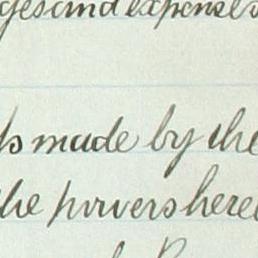 ges and expenses
ls made by the
the powers here